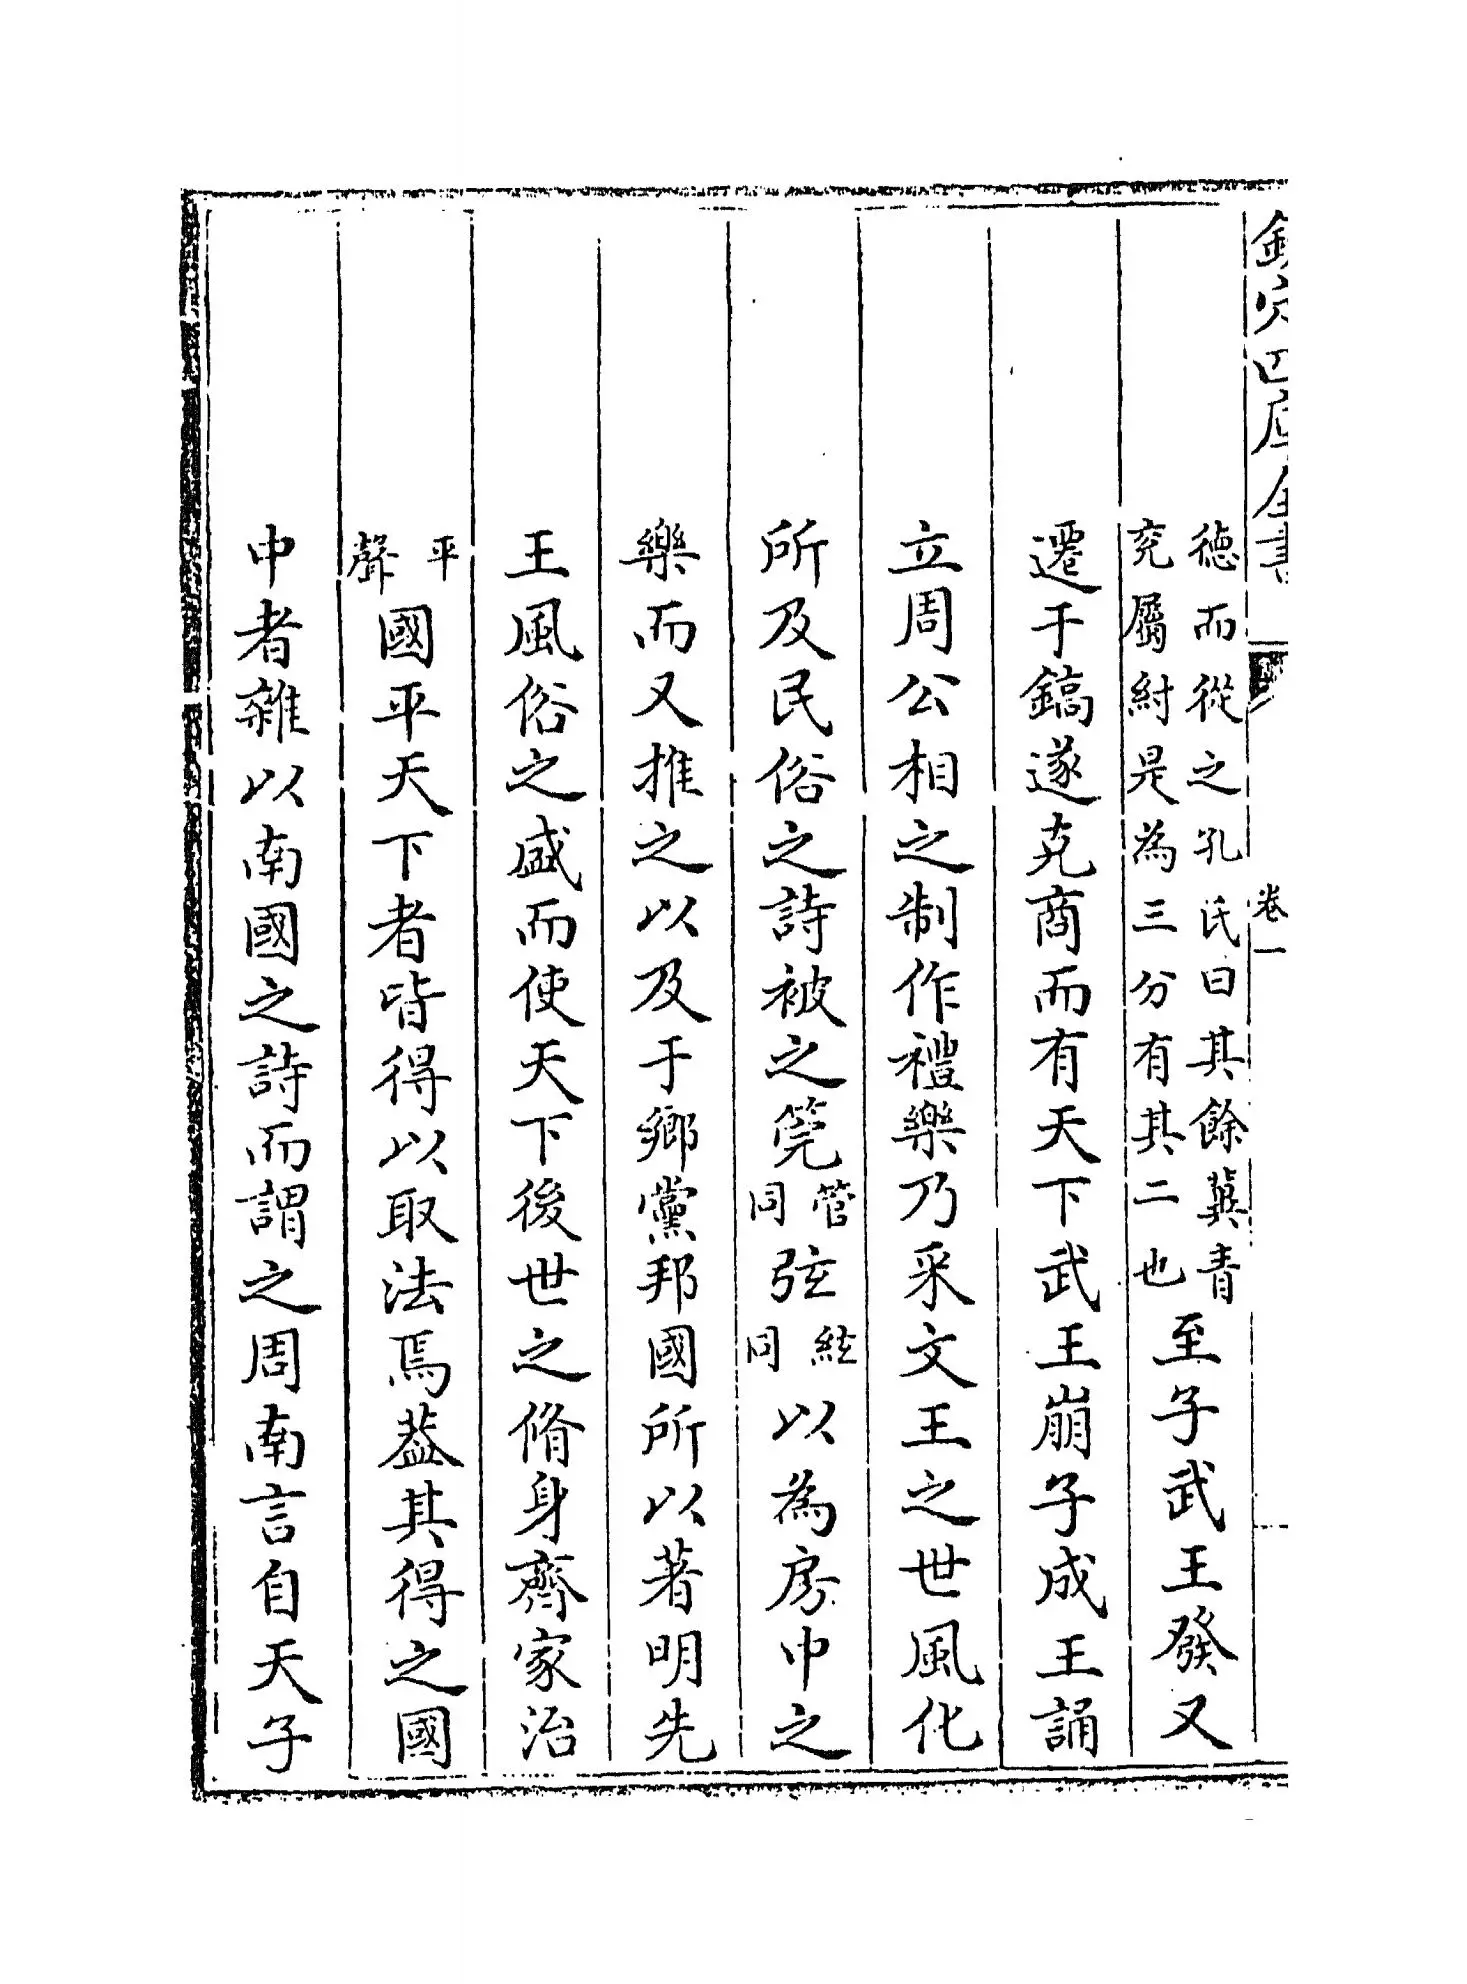 欽定四庫全書
卷一
德而從之孔氏曰其餘冀青
兖屬紂是為三分有其二也
至子武王發又
遷于鎬遂克商而有天下武王崩子成王誦
立周公相之制作禮樂乃采文王之世風化
所及民俗之詩被之筦管同弦絃同以為房中之
樂而又推之以及于鄉黨邦國所以著明先
王風俗之盛而使天下後世之脩身齊家治
平聲國平天下者皆得以取法焉葢其得之國
中者雜以南國之詩而謂之周南言自天子